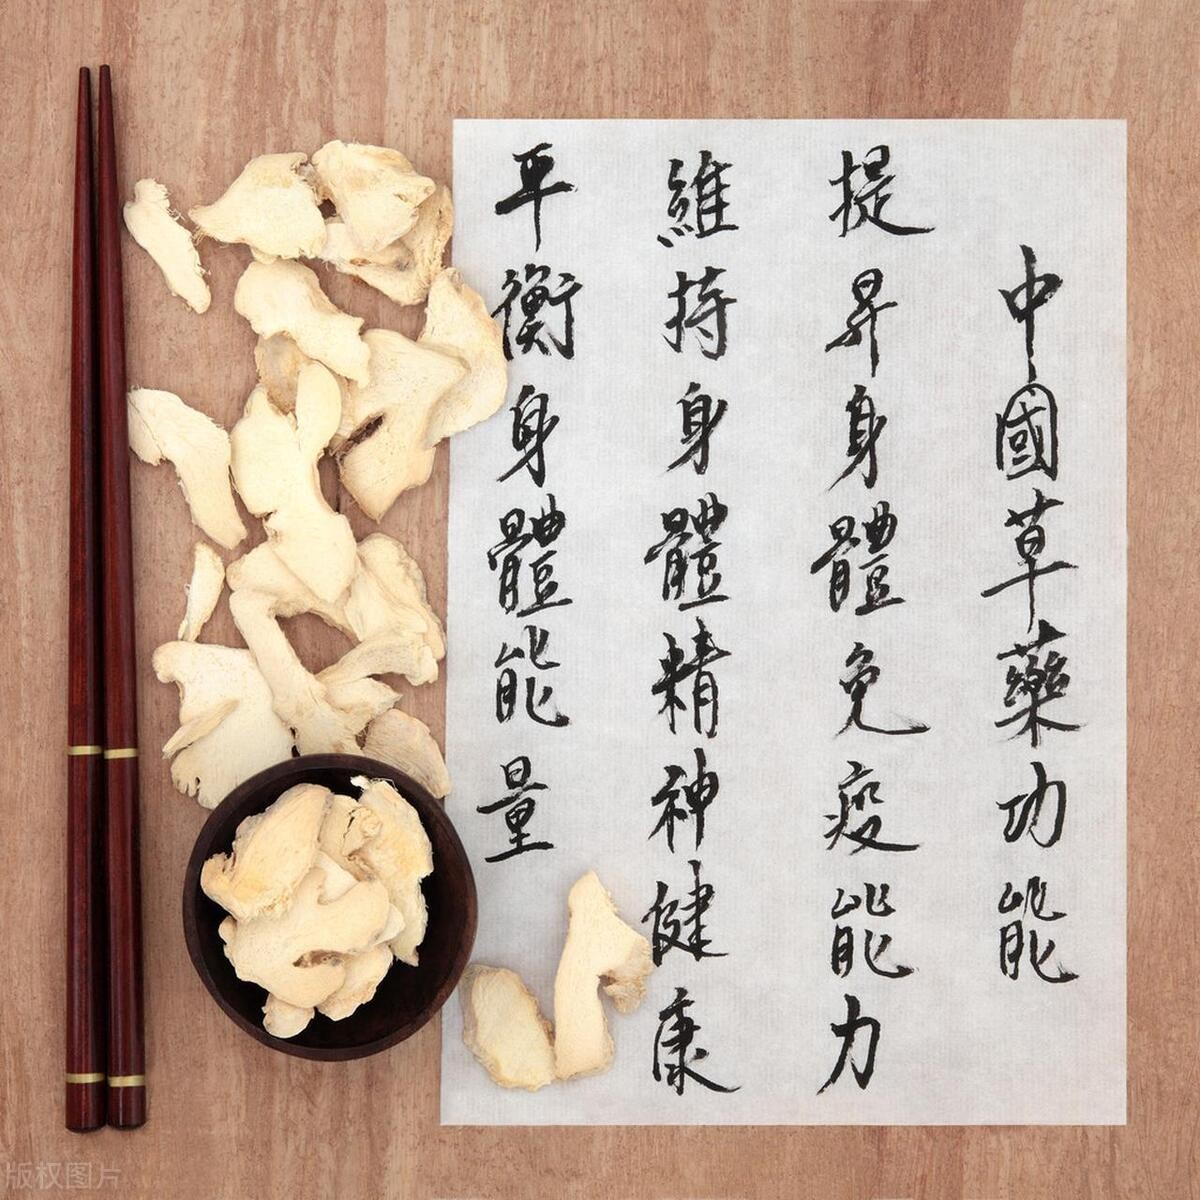 中國草藥功能
提昇身體免疫能力
維持身體精神健康
平衡身體能量
版权图片